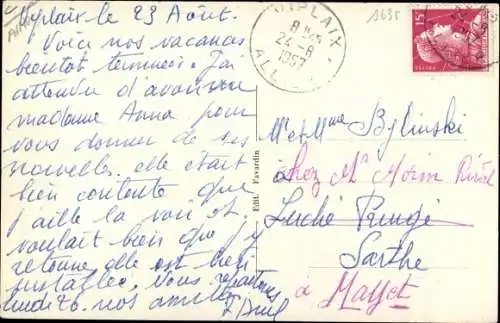 Huplaix le 23 Août.
Voici nos vacances
bientôt terminées. J'ai
attendu d'avoir vu
madame Anna pour
vous donner de ses
nouvelles. elle était
bien contente que
j'aille la voir et
voulait bien que j'y
retourne elle est bien
installée, Vous repartons
lundi 26. nos amitiés
HUPLAIX
8H45
24-8
1957
ALL
1635
15F
Edit. Pavardin
M et Mme Bylinski
à chez Mr Morin Rivet
Luché Pringé
Sarthe
à Mayet